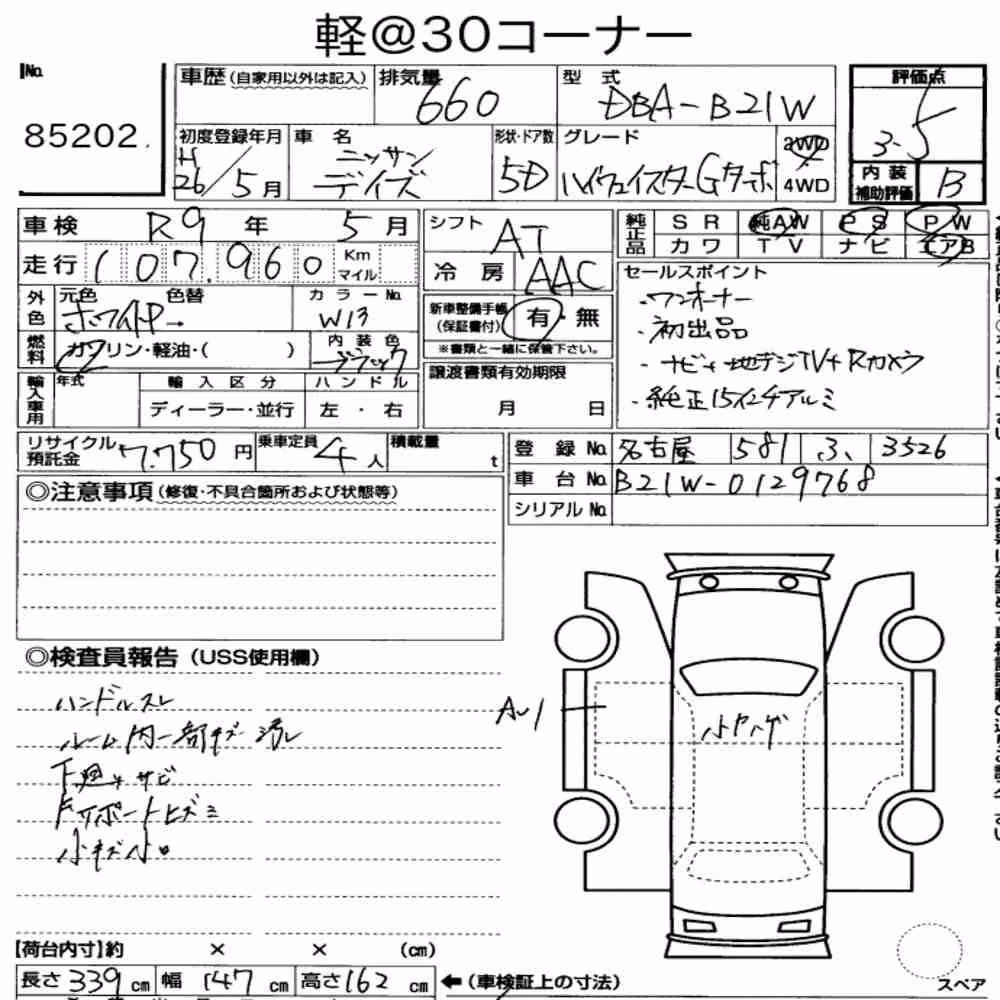 軽@30コーナー
No.
85202
車歴(自家用以外は記入)
排気量 660
型式 DBA-B21W
評価点 3.5
初度登録年月 H26/5月
車名 ニッサン デイズ
形状・ドア数 5D
グレード ハイウェイスターGターボ
2WD
4WD
内装補助評価 B
車検 R9年 5月
シフト AT
純正品 SR 純AW PS PW
カワ TV ナビ エアB
走行 107,960 Km マイル
冷房 AAC
セールスポイント
・ワンオーナー
・初出品
・ナビ+地デジTV+Rカメラ
・純正15インチアルミ
外色 元色 ホワイトP→ 色替
カラーNo. W13
新車整備手帳(保証書付) 有・無
※書類と一緒に保管下さい。
燃料 ガソリン・軽油・( )
内装色 ブラック
譲渡書類有効期限
月 日
輸入車用 年式 輸入区分 ハンドル
ディーラー・並行 左・右
リサイクル預託金 ¥7,750円
乗車定員 4人
積載量 t
登録No. 名古屋 581 3526
車台No. B21W-0129768
シリアルNo.
◎注意事項(修復・不具合箇所および状態等)
◎検査員報告(USS使用欄)
ハンドルスレ
ルーム内一部キズ汚レ
下廻サビ
Fサポートヒズミ
小キズ小凹
小ヤハゲ
【荷台内寸】約 × × (cm)
長さ339cm 幅147cm 高さ162cm
←(車検証上の寸法)
スペア